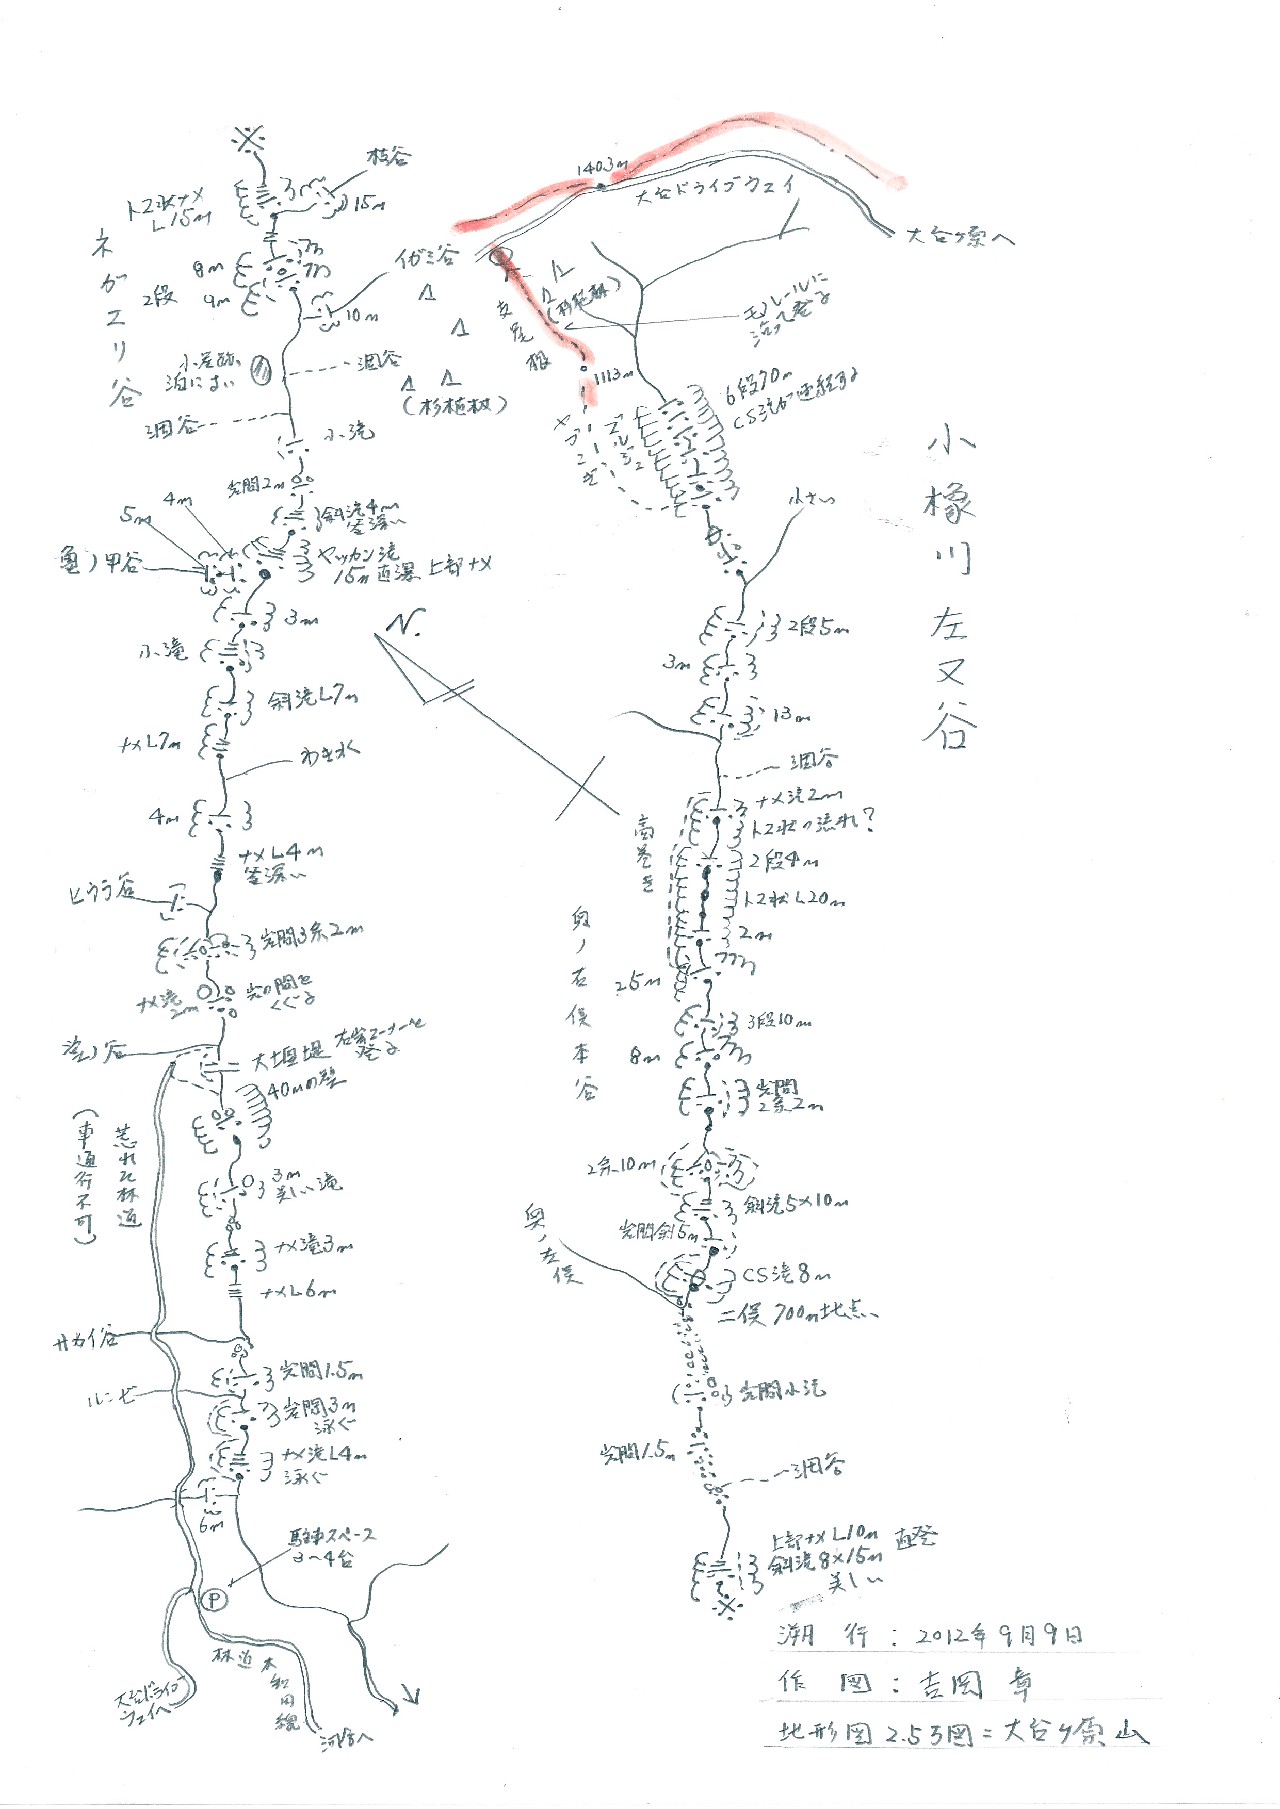 小橡川左又谷
ネガエリ谷
枝谷
トヱ状ナメ
L15m
15m
8m
7m
2段
9m
イガミ谷
10m
涸谷
涸谷
小滝
2m
4m
5m
斜滝4m
釜深い
ヤッカン滝
15m直瀑 上部ナメ
3m
小滝
斜滝L7m
ナメL7m
わき水
4m
ナメL4m
釜深い
ヒウラ谷
岩間3条2m
ナメ滝
2m
岩の間を
くぐる
大堰堤
40mの壁
荒れた林道
(車通行不可)
3m
美しい滝
ナメ滝3m
ナメL6m
岩間1.5m
ルンゼ
岩間3m
泳ぐ
ナメ滝L4m
泳ぐ
6m
駐車スペース
3~4台
P
大台ドライブ
ウェイへ
河合へ
N.
1403m
大台ドライブウェイ
大台ヶ原へ
支尾根
モノレールに
沿って登る
1113m
(杉植林)
6段70m
CS滝が連続する
小さい
2段5m
3m
13m
涸谷
ナメ滝2m
トヱ状の流れ?
高巻き
2段4m
トヱ状L20m
2m
25m
奥ノ右俣本谷
3段10m
8m
岩間
2条2m
2条10m
斜滝5×10m
岩間斜5m
奥ノ左俣
CS滝8m
二俣 700m地点
岩間小滝
岩間1.5m
涸谷
上部ナメL10m 直登
斜滝8×15m
美しい
溯 行:2012年9月9日
作 図:吉岡 章
地形図2.5万図=大台ヶ原山